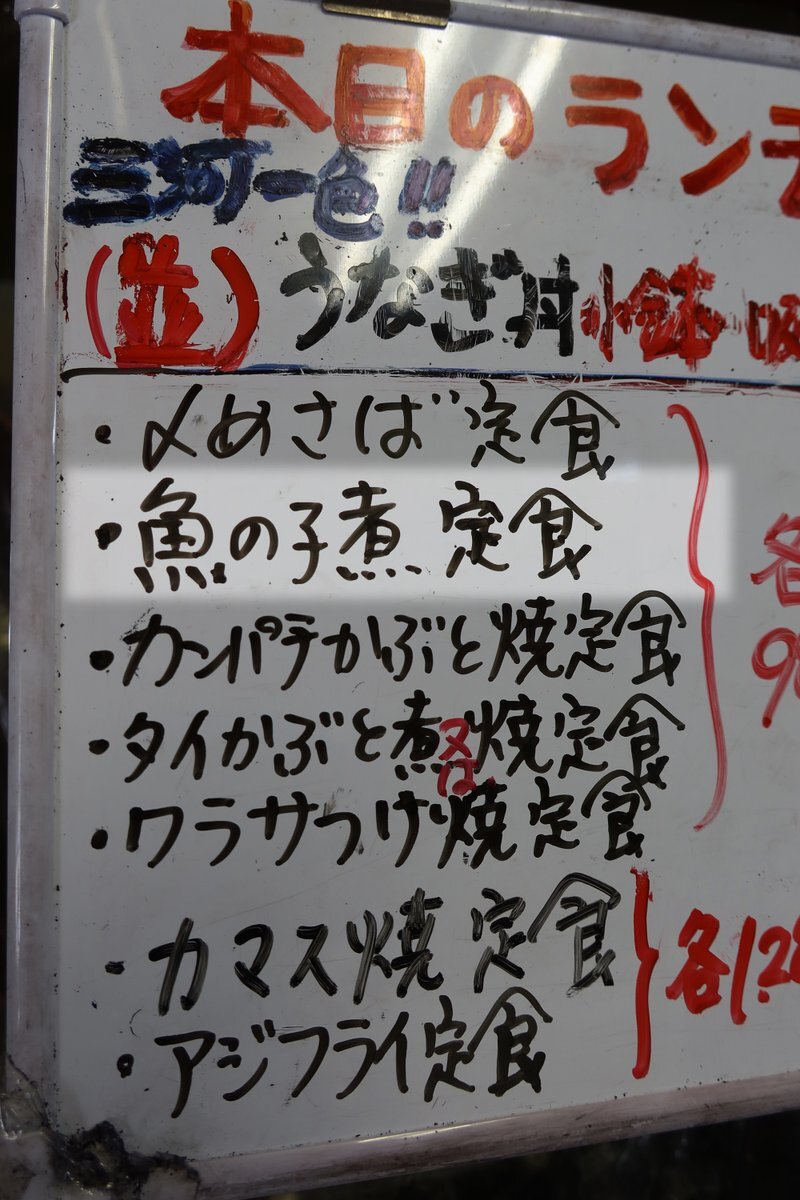 本日のラン
三河一色!!
(並)うなぎ丼 小鉢
・〆めさば定食
・魚の子煮定食
・カンパチかぶと焼定食
・タイかぶと煮又は焼定食
・ワラサつけ焼定食
各
・カマス焼定食
・アジフライ定食
各1.2